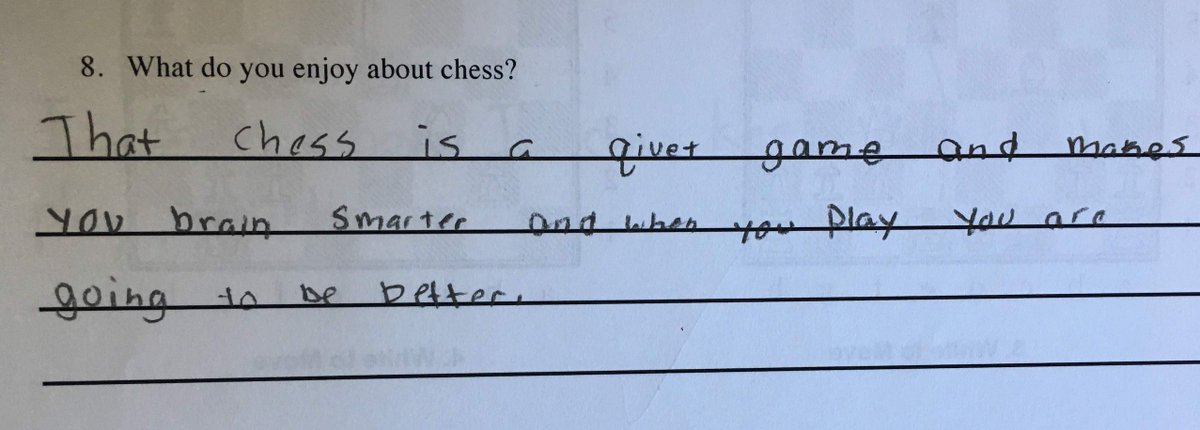 8. What do you enjoy about chess?
That chess is a qivet game and makes
you brain smarter and when you play you are
going to be better.